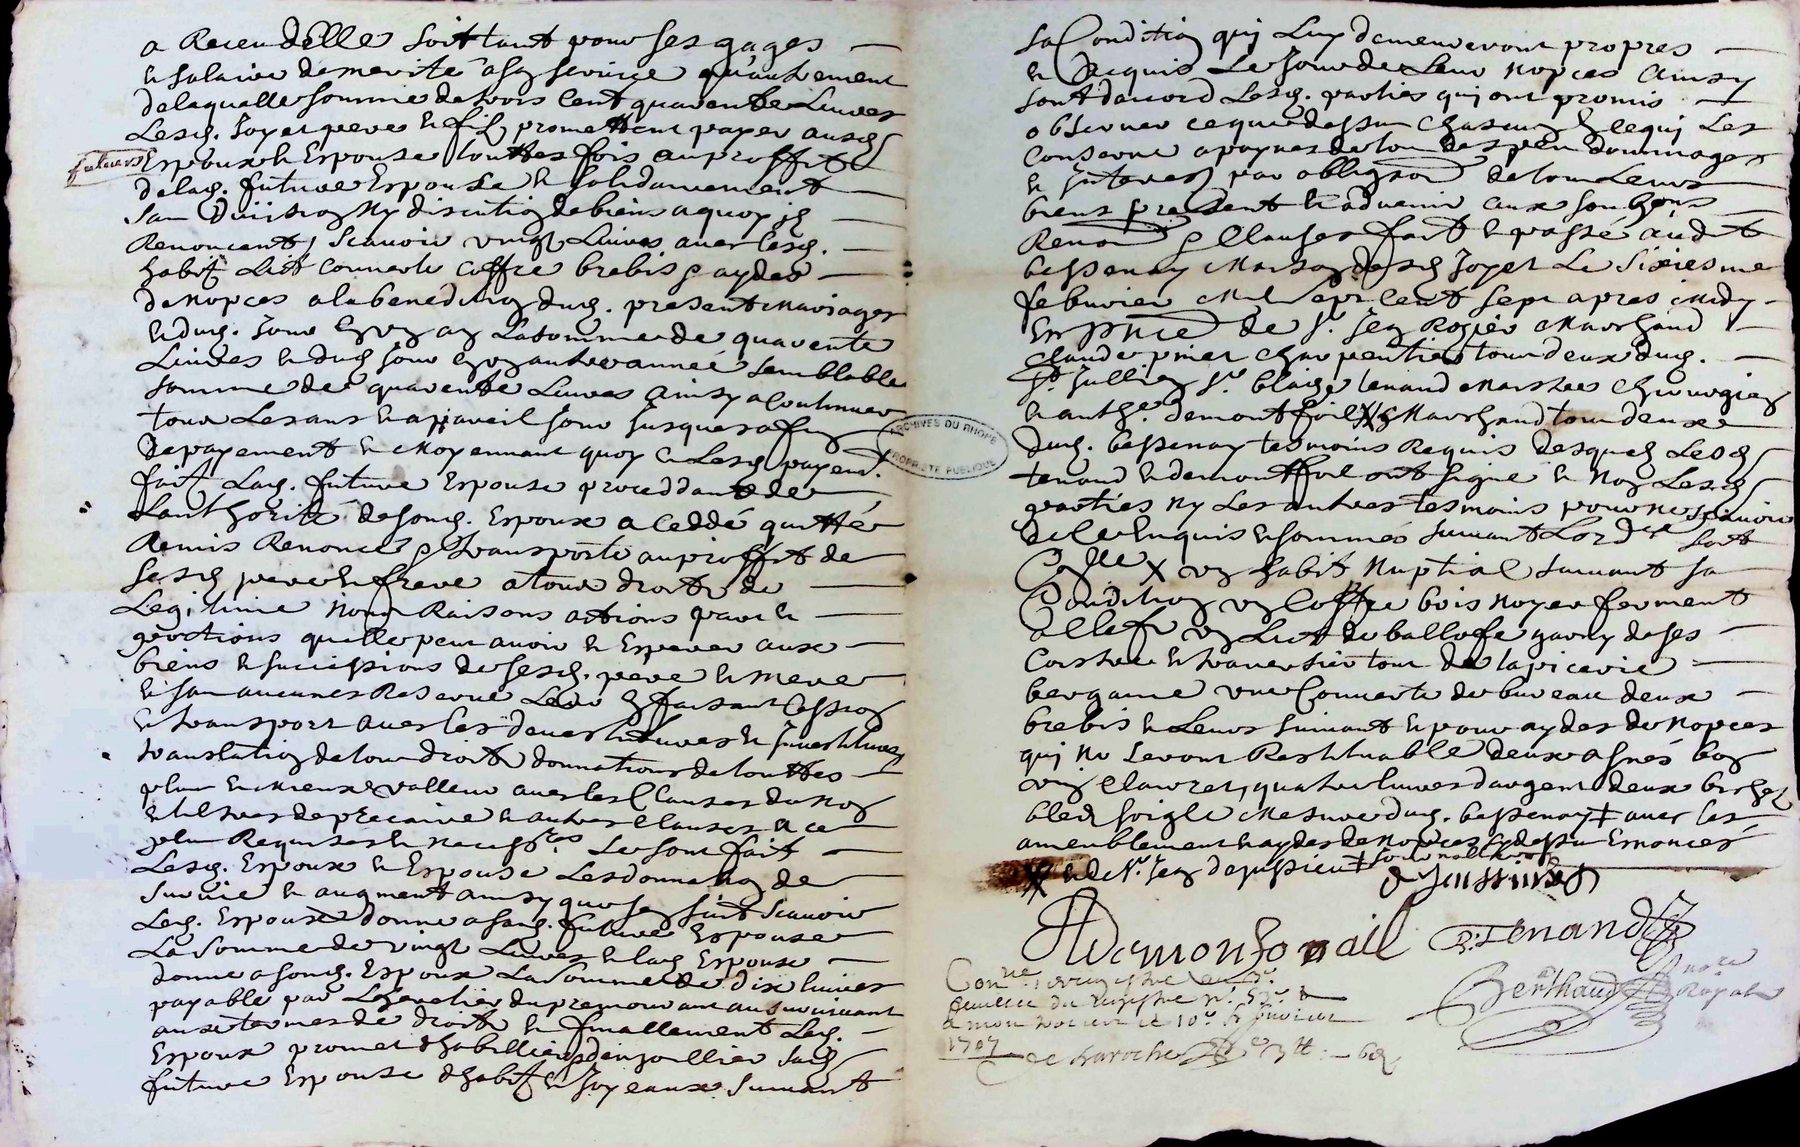 a Receu delle soit tant pour ses gages
et salaire de merité a son service qu'autrement
de laqualle somme de trois cent quarente Livres
Lesd. Joyet pere et fil promettent payer ausd
futurs Espoux et Espouse touttes fois au proffit
de lad. future Espouse et solidairement
san division ny discution de biens a quoy ils
Renoncent, scavoir vingt Livres avec lesd.
habit Lict couverte coffre brebis et aydes
de nopces a la benediction dud. present mariage
et dud. jour en un an La somme de quarente
Livres et dud jour en un autre année semblable
somme de quarente Livres ainsy a continuer
tour Les ans et a pareil jour jusques a fin
de payement et Moyennant quoy et Lesd. payem.
fait Lad. future Espouse proceddant de
Lauthorité de sond. Espoux a ceddé quitté
Remis Renoncé et transporté au proffit de
sesd pere et frere a tour droits de
Legitime Noms Raisons actions part et
portions quelle peut avoir et Esperer aux
biens et successions de sesd. pere et mere
et san aucunes Reserve Leur en faisant cession
et transport avec les devestitures et Investitures
translation de tour droits donnations de touttes
plus et mieux valleur avec les Clauses du Nom
et tiltres de precaire et autres clauses a ce
plus Requises et necessres Le sont fait
Lesd. Espoux et Espouse Les donnation de
survie et augment ainsy que sen suit scavoir
Led. Espoux donne a sad. future Espouse
La somme de vingt Livres et lad Espouse
donne a sond. Espoux La somme de dix livres
payable par Les heritiers du premourant au survivant
aux termes de droits et finallement Led.
Espoux promet d'habillier et d'enjoaillier sad
future Espouse d'habit et Joyeaux suivant
sa Condition quj Luy demeureront propres
et acquis Le jour de Leur nopces Ainsy
sont d'accord Lesd. parties quj ont promis
observer ce que dessus chacun en ce quj Les
conserne a paynes de tou despens dommages
et Interest par obligaon de tou Leurs
biens present et advenir aux soubzons
Renons et Clauses fait et passé audit
bessenay Maison desd Joyet Le sixiesme
febvrier Mil sept Cent sept apres Midy
En pnce de Sr. Jean Rozier Marchand
Claude pinet charpentier tour deux dud.
St. Jullien Sr. blaise tenand Maistres chirurgien
et anthe. demontfoil X Marchand tour deux
dud. bessenay tesmoins Requis desquel Lesd
tenand et demontfoil ont signé et Non Lesd
parties ny Les autres tesmoins pour ne scavoir
de ce Enquis et sommés suivant Lordce sont
Coffre X un habit Nuptial suivant sa
Condition un Coffre bois noyer ferment
a clef un Lict de ballofe garny de ses
coistre et traversier tour de tapicerie
bergame une Couverte de bureau deux
brebis et Leurs suivant et pour aydes de nopces
quj ne seront Restituable deux asnés bon
vin clairet, quatre livres d'argent deux bichet
bled soigle Mesure dud. bessenay + avec les
ameublement et aydes de nopces cy dessu Enoncés
X et de Sr. Jean de jussieu +
de Jussieu
A demonfonail B. Tenand
Conlle. enregistré au
feuillet du registre n. 
a mon 10e fevrier
1707
de Laroche
Berthaud nore Royal
ARCHIVES DU RHONE
PROPRIETE PUBLIQUE